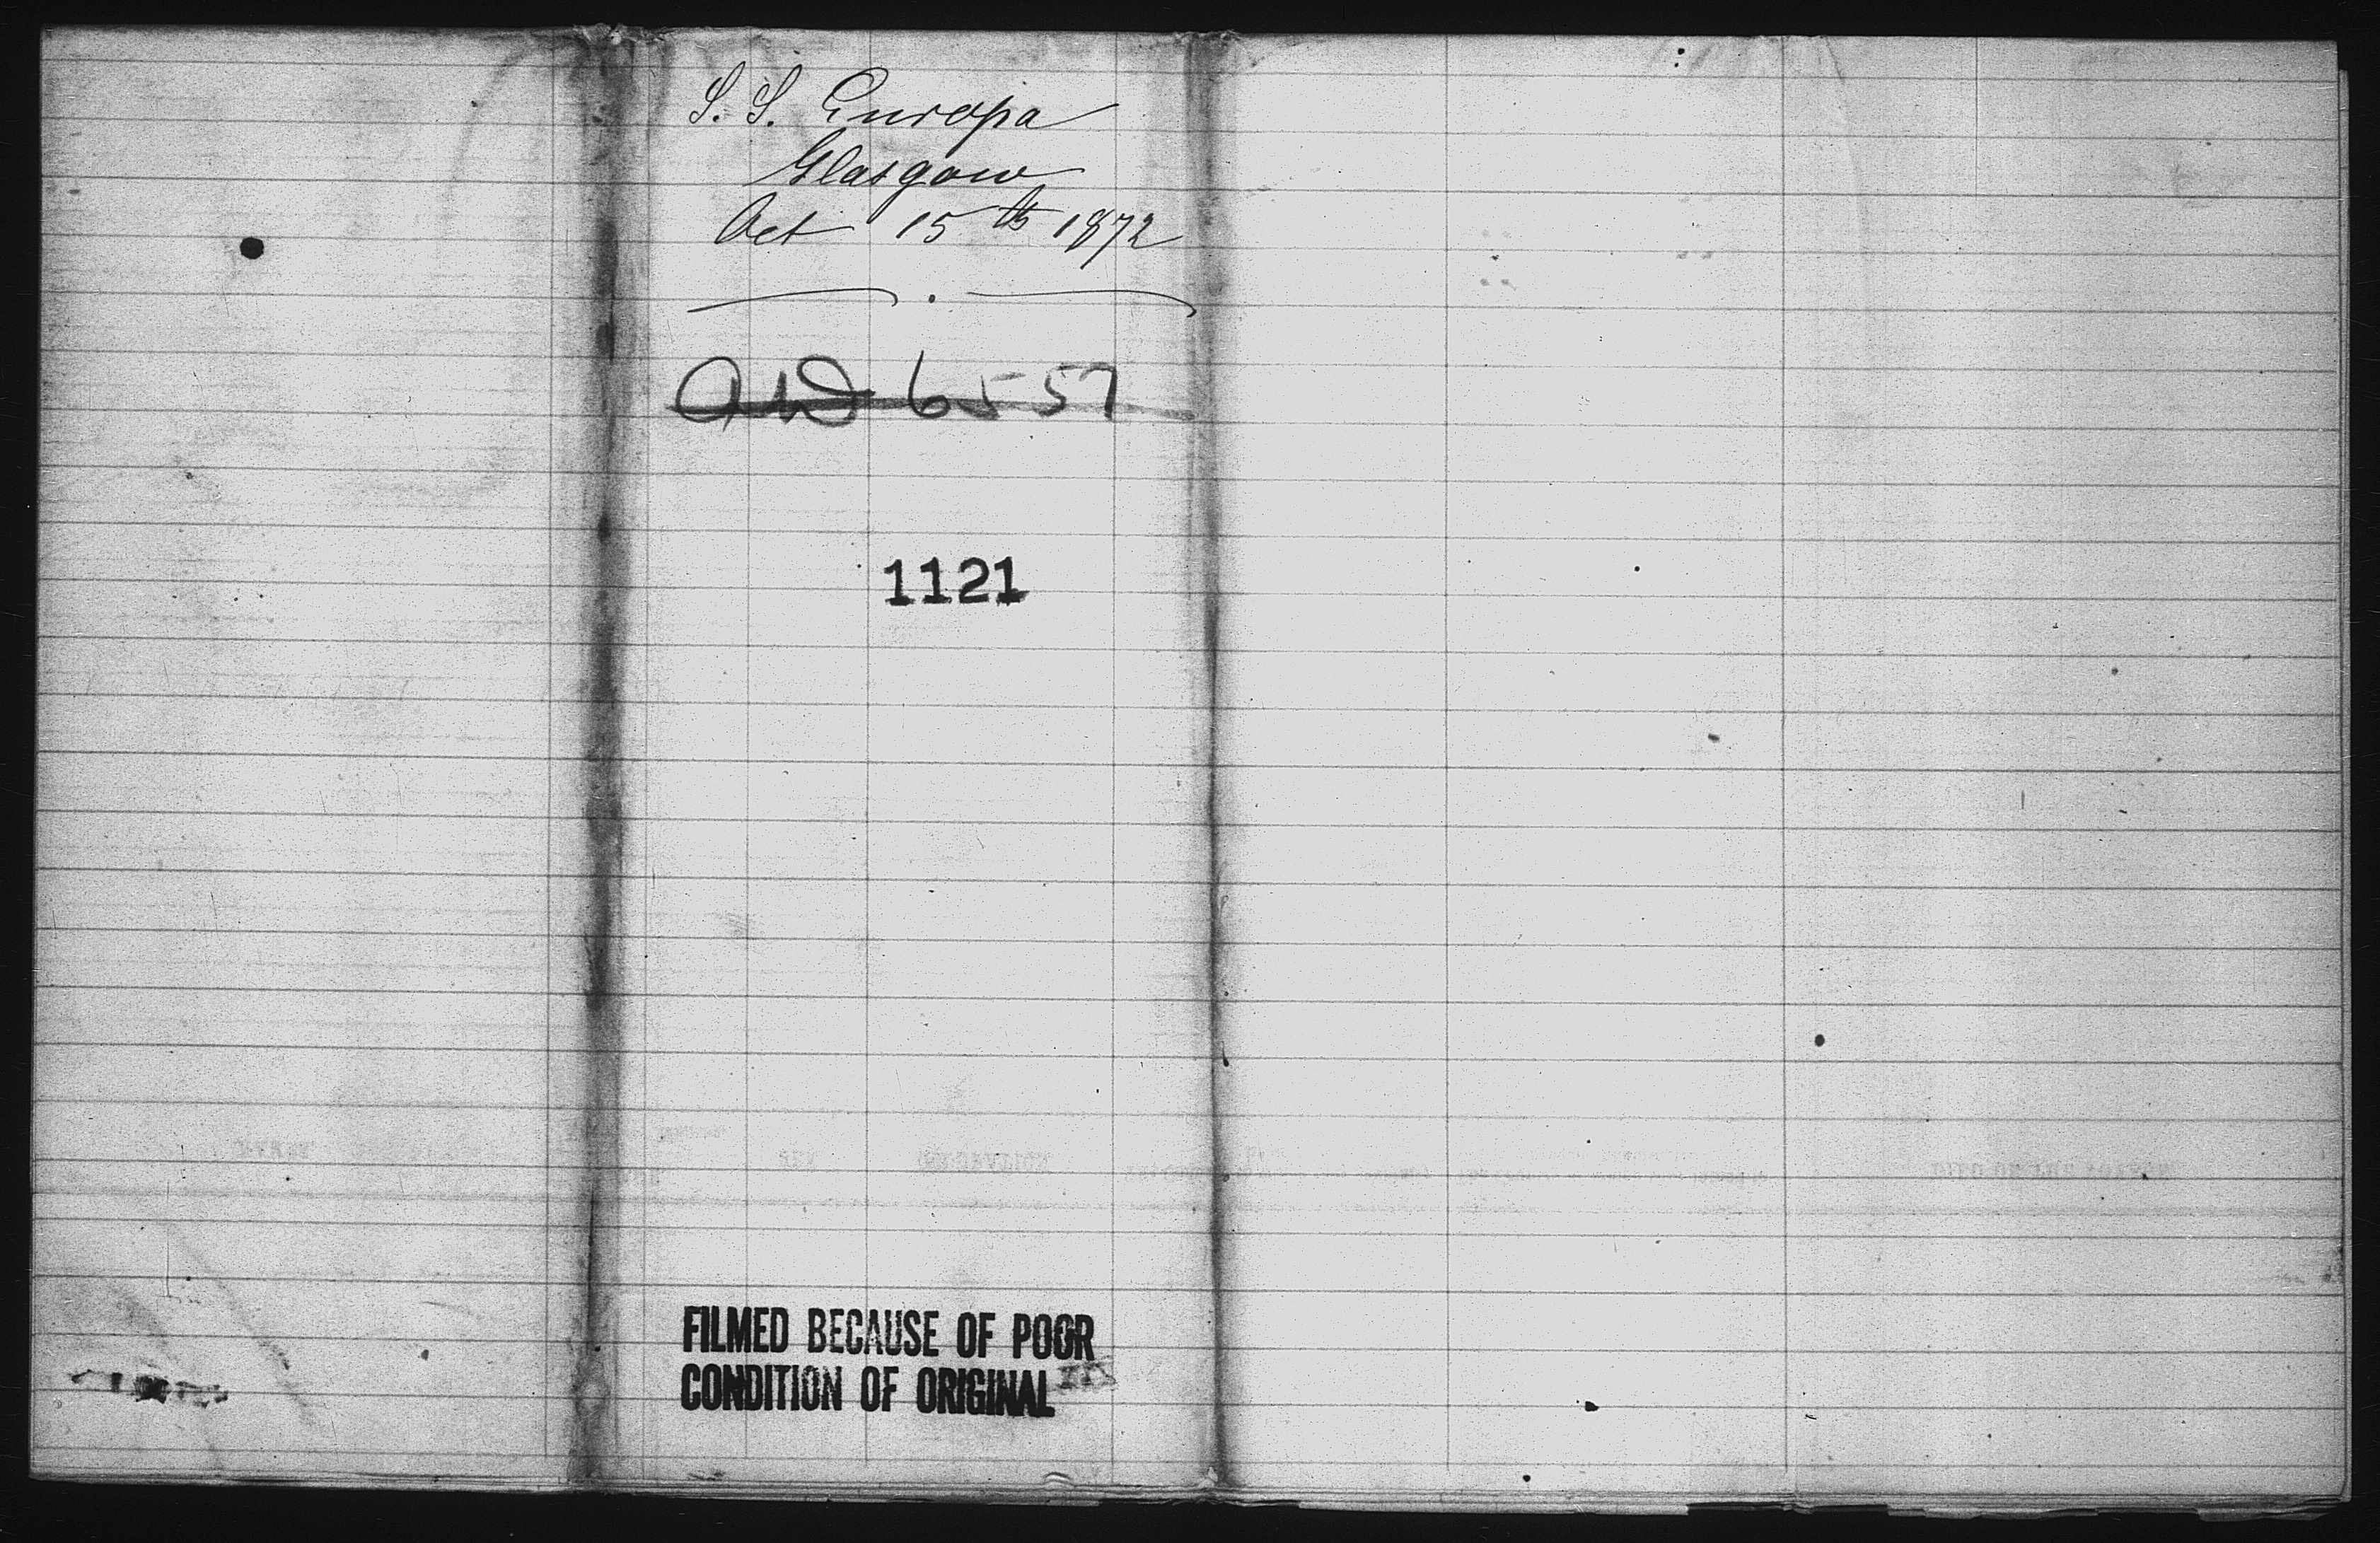 S. S. Europa
Glasgow
Oct 15th 1872
6557
1121
FILMED BECAUSE OF POOR
CONDITION OF ORIGINAL